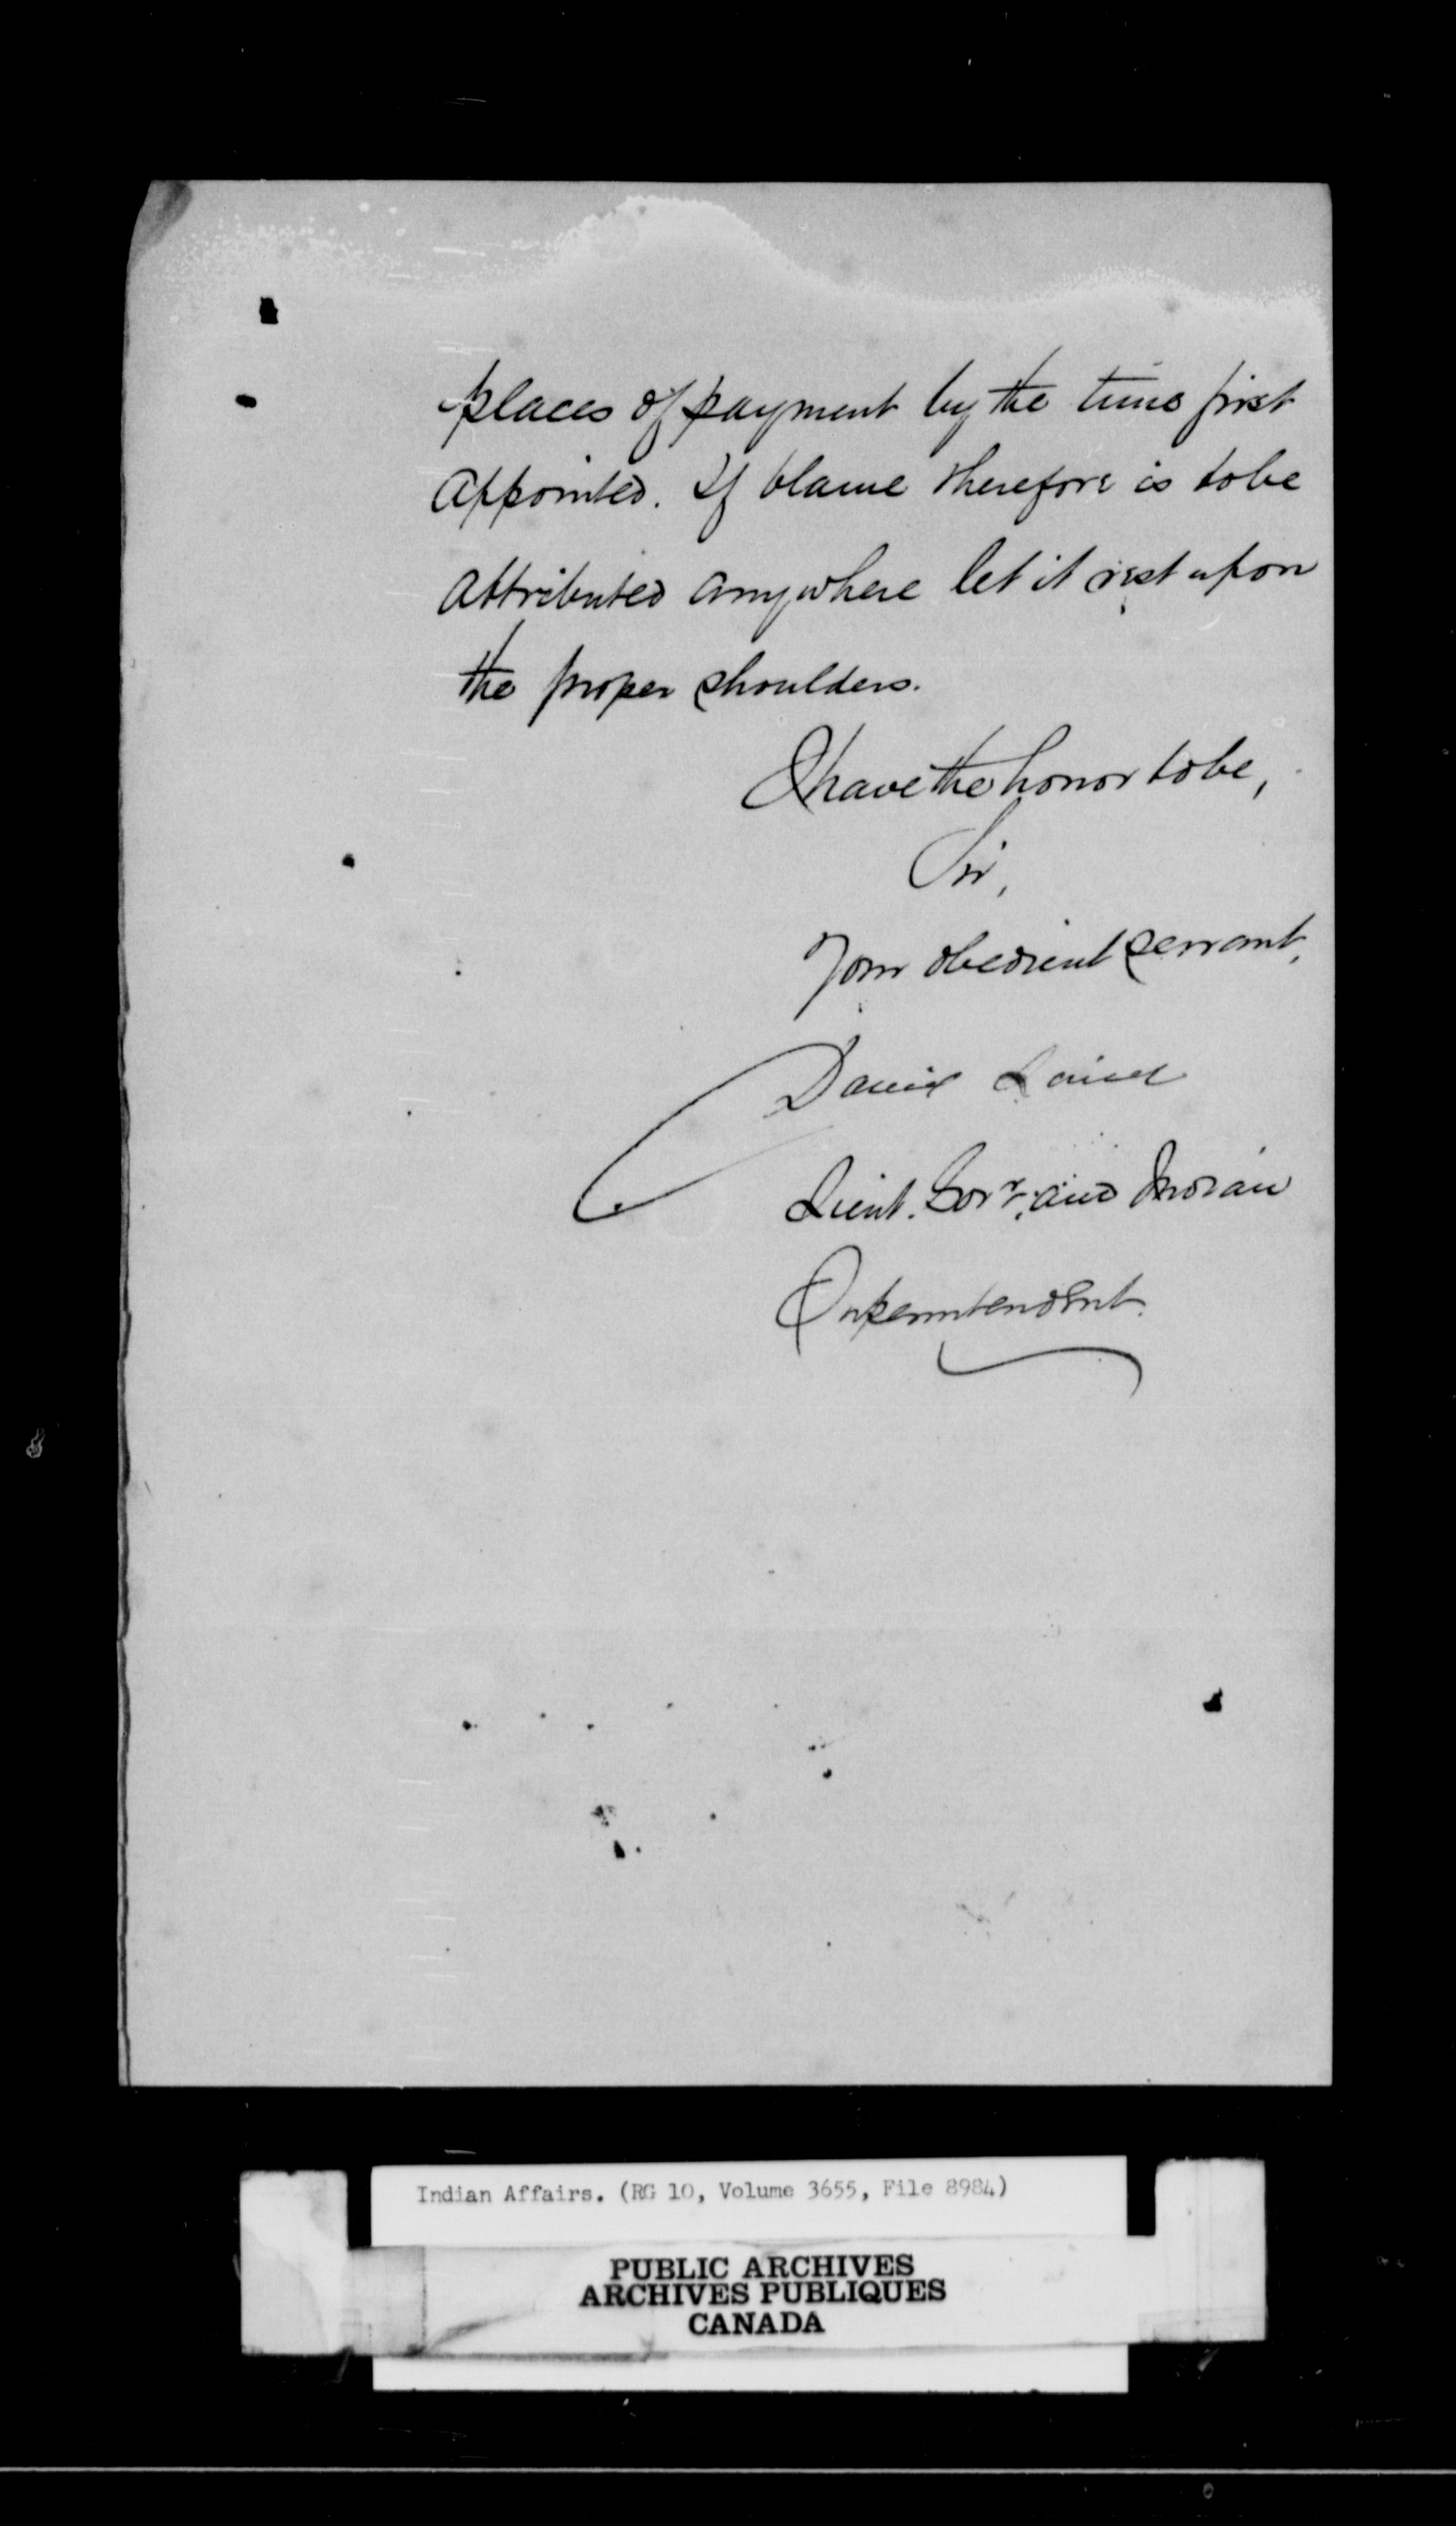 places of payment by the time first
appointed. If blame therefore is to be
attributed anywhere let it rest upon
the proper shoulders.
I have the honor to be,
Sir,
Your obedient servant,
David Laird
Lieut. Govr. and Indian
Superintendent.
Indian Affairs. (RG 10, Volume 3655, File 8984)
PUBLIC ARCHIVES
ARCHIVES PUBLIQUES
CANADA